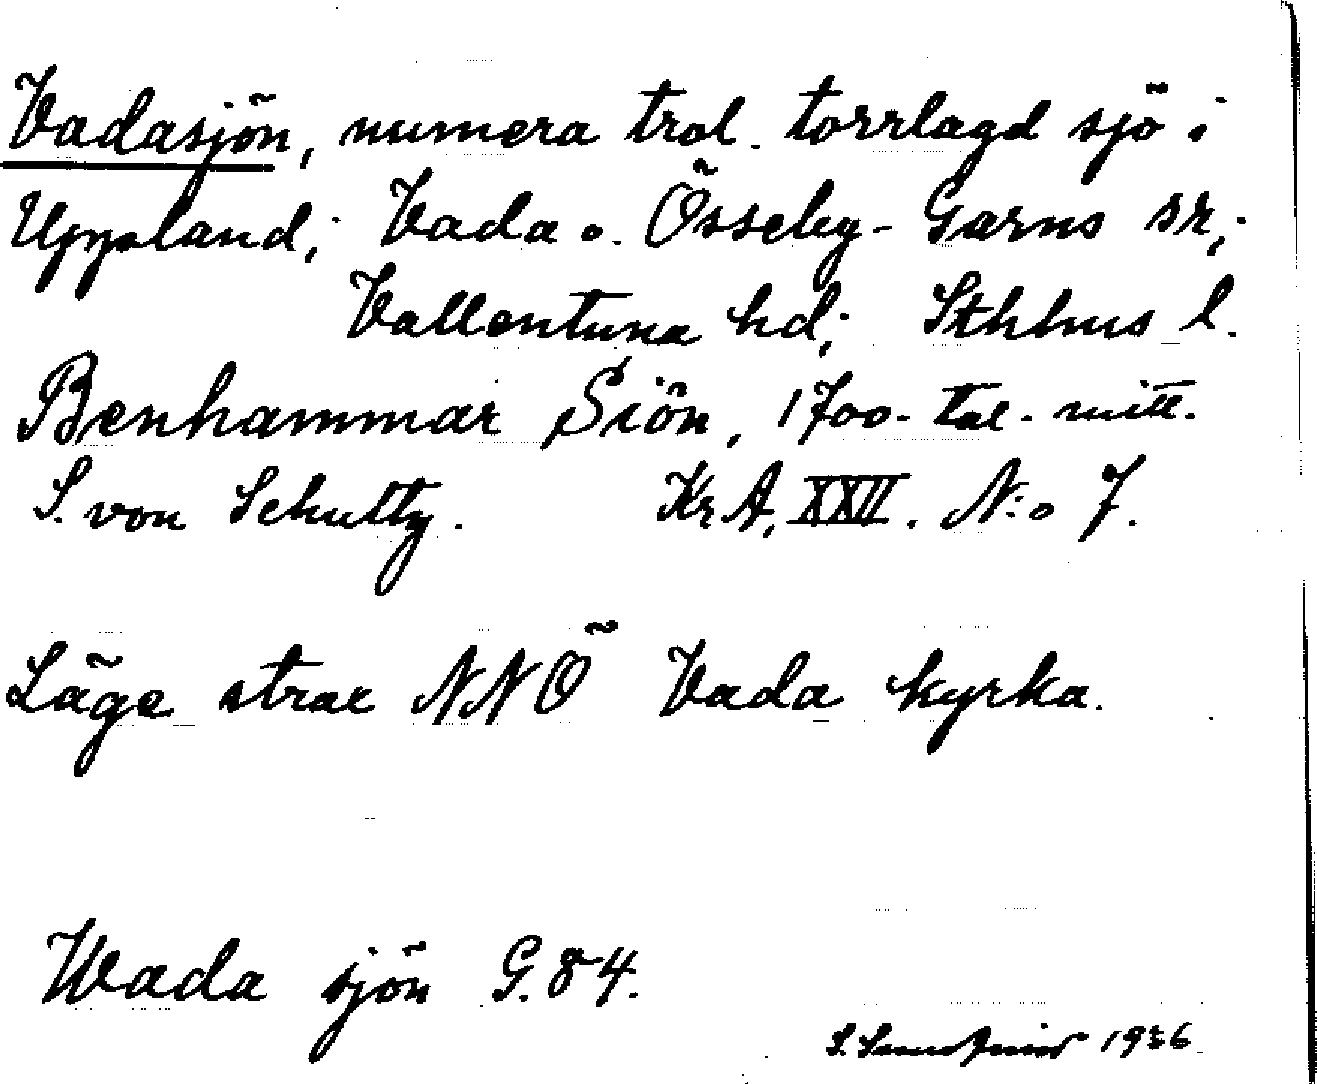 Vadasjön, numera trol. torrlagd sjö i
Uppland; Vada o. Össeby-Garns sr;
Vallentuna hd; Sthlms l.
Benhammar Siön, 1700-tal-mitt.
S. von Schultz. Kr A, XXII. N:o 7.
Läge strax NNÖ Vada kyrka.
Wada sjön G. 84.
S. 1936